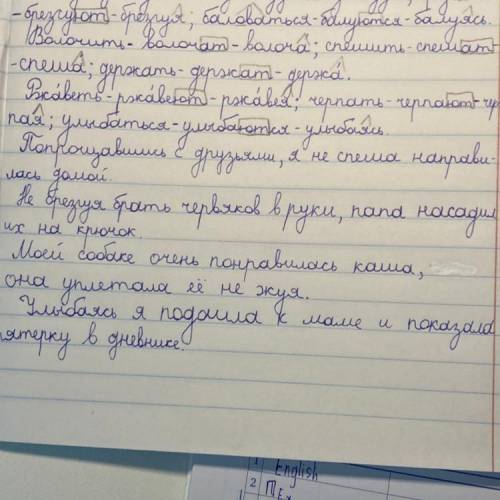 -брезгуют-брезгуя; баловаться-балуются-балуясь.
Волочить-волочат-волоча́; спешить-спешат-
-спеша́; держать-держат-держа́.
Ржаветь-ржавеют-ржавея; черпать-черпают-чер
пая; улыбаться-улыбаются-улыбаясь.
Попрощавшись с друзьями, я не спеша направи-
лась домой.
Не брезгуя брать червяков в руки, папа насадил
их на крючок.
Моей собаке очень понравилась каша,
она уплетала её не жуя.
Улыбаясь я подошла к маме и показала
пятерку в дневнике.
1 English
2